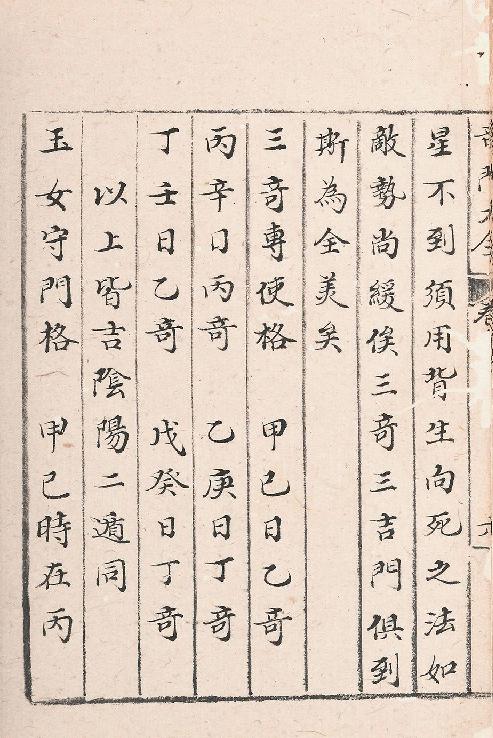 奇門大全 卷
星不到須用背生向死之法如
敵勢尚緩俟三奇三吉門俱到
斯為全美矣
三奇專使格 甲已日乙奇
丙辛日丙奇 乙庚日丁奇
丁壬日乙奇 戊癸日丁奇
以上皆吉陰陽二遁同
玉女守門格 甲已時在丙